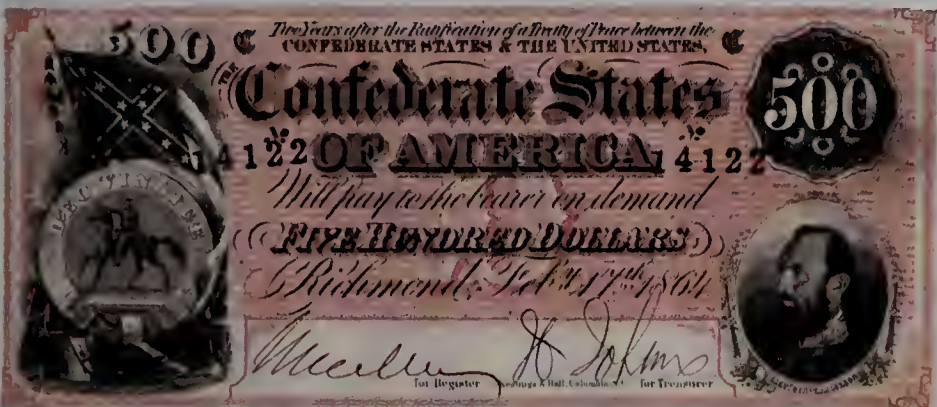 500
Two Years after the Ratification of a Treaty of Peace between the
C CONFEDERATE STATES & THE UNITED STATES, C
THE
Confederate States
500
No 14122 OF AMERICA No 14122
Will pay to the bearer on demand
FIVE HUNDRED DOLLARS
Richmond, Feby. 17th. 1864
for Register
& Ball, Columbia, S.C.
for Treasurer